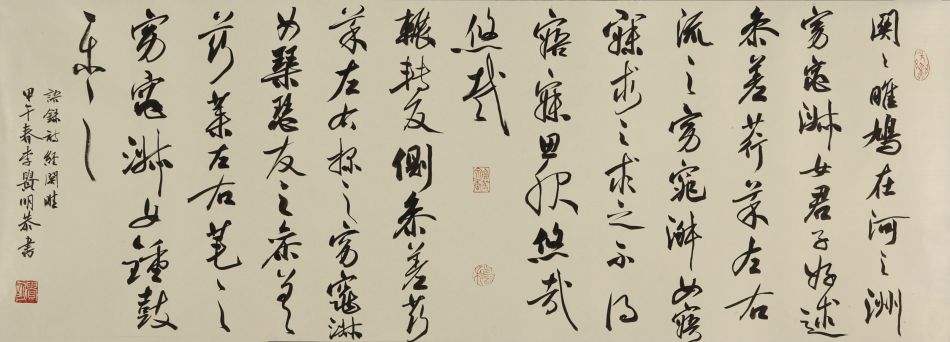 関々雎鳩在河之洲
窈窕淑女君子好逑
参差荇菜左右
流之窈窕淑女寤
寐求之求之不得
寤寐思服悠哉
悠哉
輾轉反側参差荇
菜左右採之窈窕淑
女琴瑟友之参差
荇菜左右芼之
窈窕淑女鍾鼓
樂之
語録詩経関雎
甲午春李賢明恭書